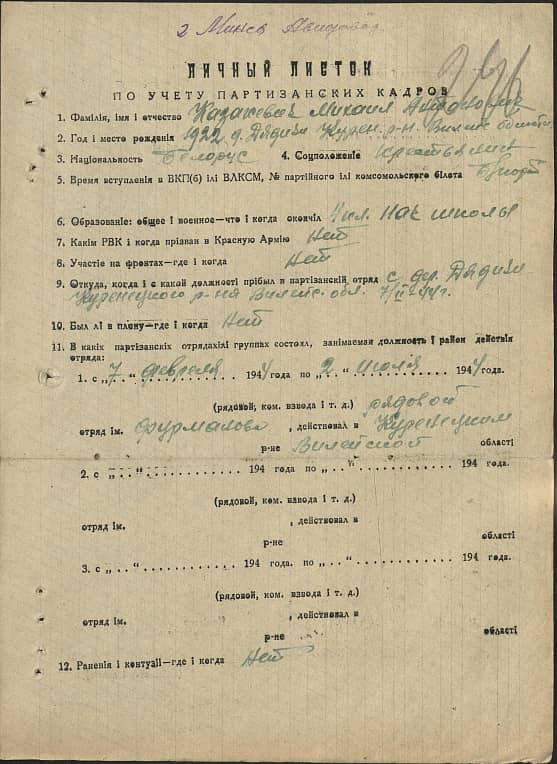 2 Минск
ЛИЧНЫЙ ЛИСТОК
ПО УЧЕТУ ПАРТИЗАНСКИХ КАДРОВ
1. Фамілія, імя і отчество Казакевич Михаил
2. Год і место рождения 1922 д. Дядизи Курен. р-н. Вилейс. области
3. Національность Белорус 4. Соцположеніе крестьянин
5. Время вступленія в ВКП(б) ілі ВЛКСМ, № партійного ілі комсомольского білета
6. Образованіе: общее і военное—что і когда окончіл 4 кл. Нач школы
7. Какім РВК і когда прізван в Красную Армію Нет
8. Участіе на фронтах—где і когда Нет
9. Откуда, когда і с какой должності прібыл в партізанскій отряд с дер. Дядизи
Куренецкого р-на Вилейс. обл. 7/II-44г.
10. Был лі в плену—где і когда Нет
11. В какіх партізанскіх отрядахілі группах состоял, занімаемая должность і район действія
отряда:
1. с „7“ февраля 1944 года по „2“ июля 1944 года.
(рядовой, ком. взвода і т. д.) рядовой
отряд ім. Фурманова, действовал в Куренецким
р-не Вилейской області
2. с „..“ 194 года по „..“ 194 года.
(рядовой, ком. взвода і т. д.)
отряд ім. , действовал в
р-не області
3. с „..“ 194 года. по „..“ 194 года.
(рядовой, ком. взвода і т. д.)
отряд ім. , действовал в
р-не області
12. Раненія і контузіі—где і когда Нет